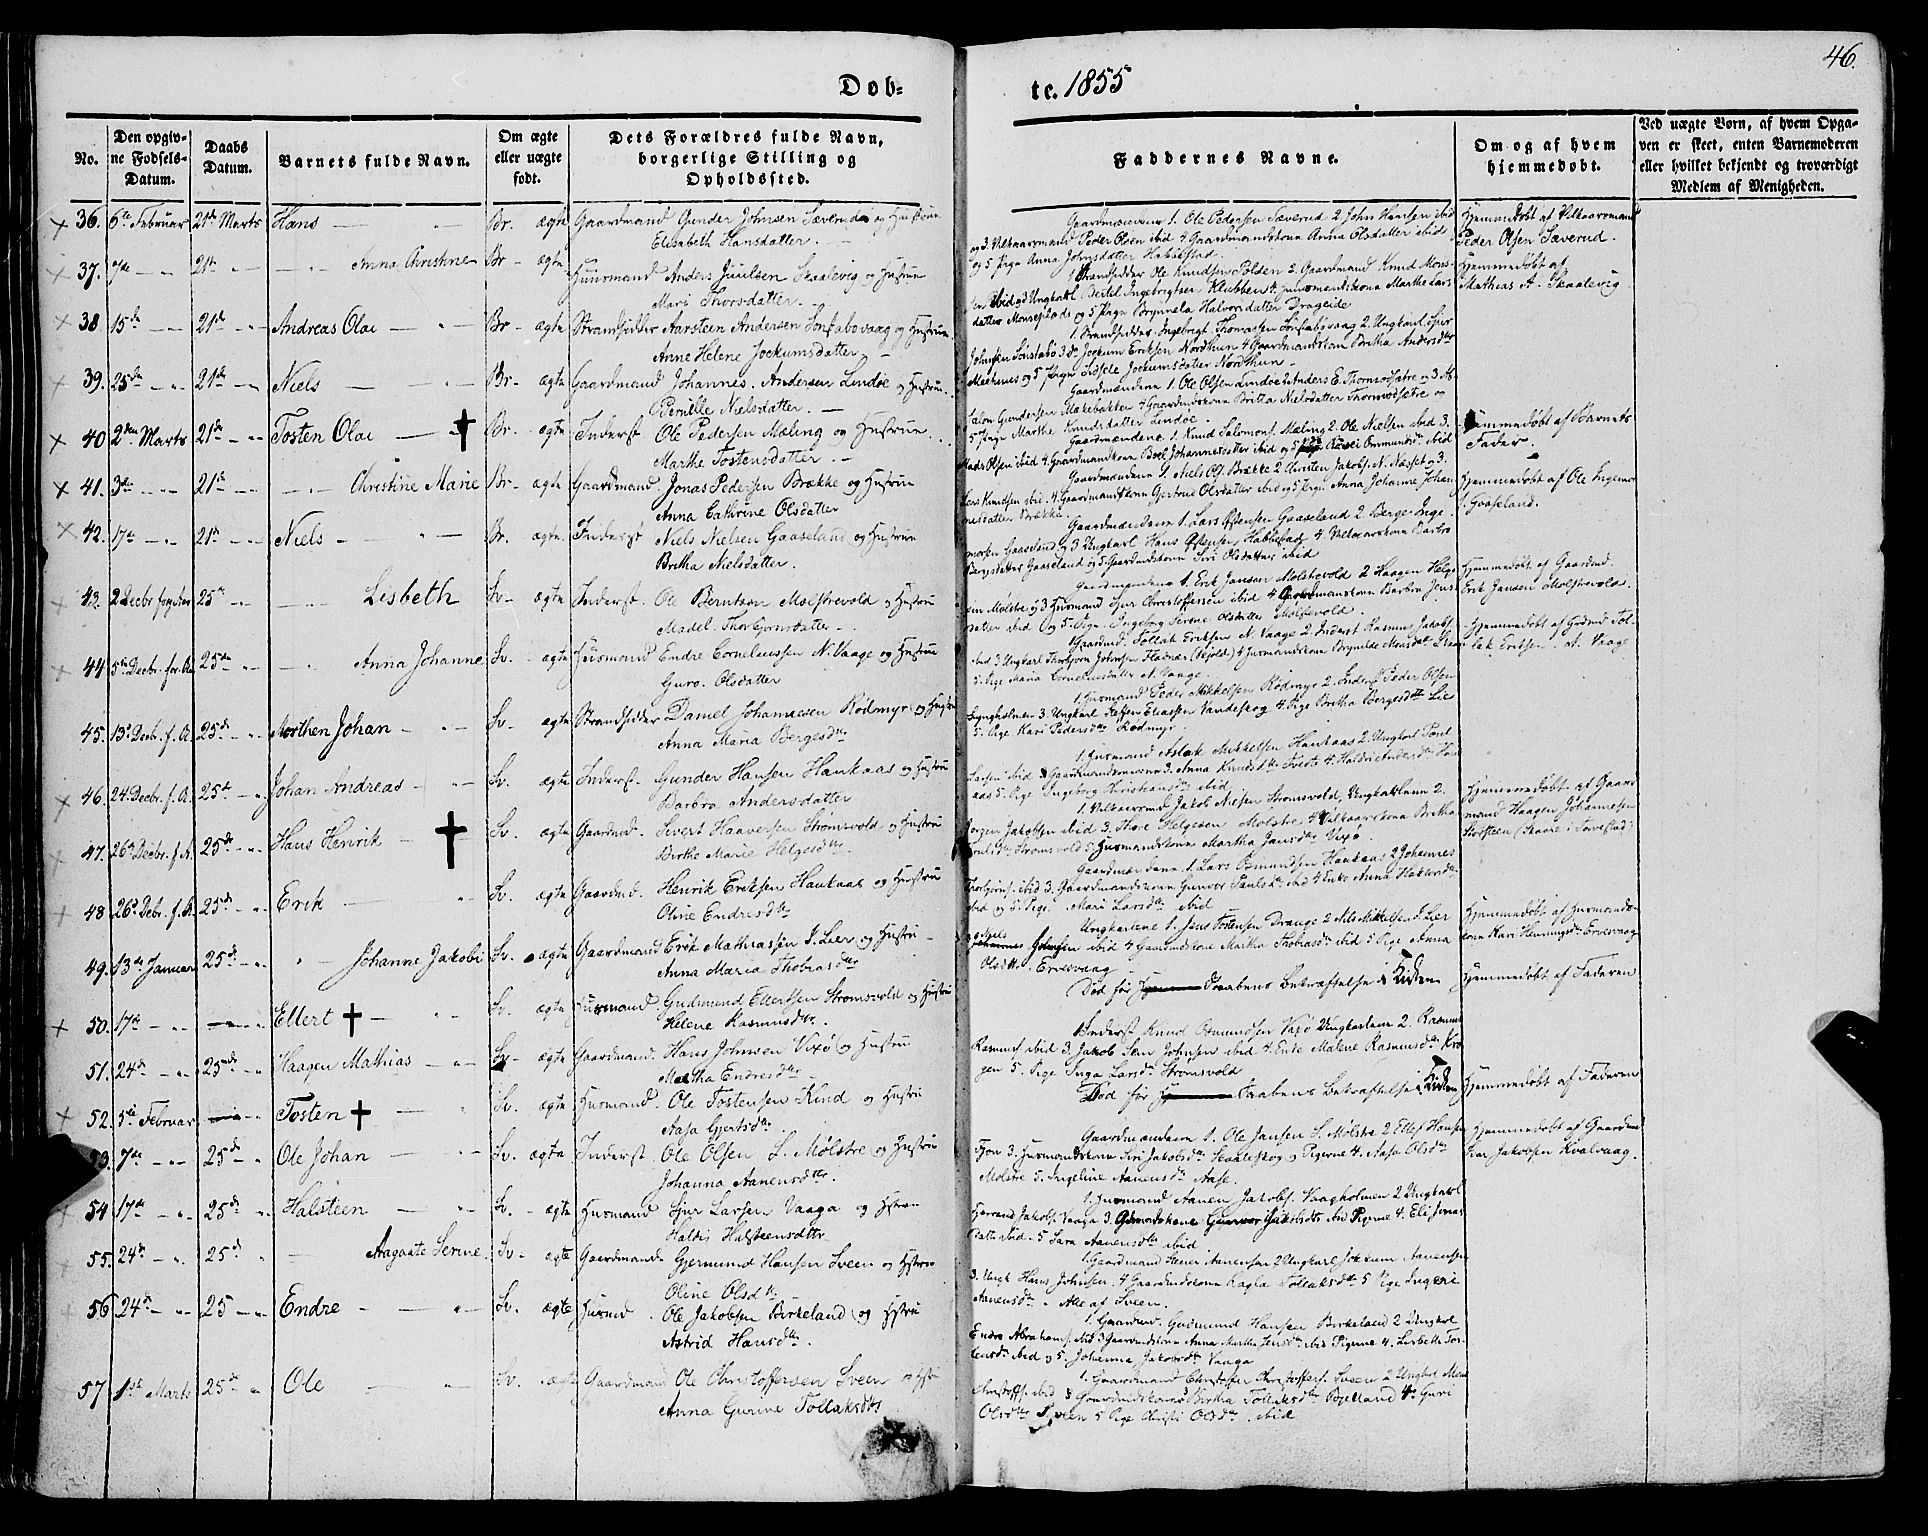 46.
Dob- te. 1855
No.
Den opgivne Fodsels-Datum.
Daabs Datum.
Barnets fulde Navn.
Om ægte eller uægte født.
Dets Forældres fulde Navn, borgerlige Stilling og Opholdssted.
Faddernes Navne.
Om og af hvem hjemmedobt.
Ved uægte Born, af hvem Opgaven er skeet, enten Barnemoderen eller hvilket bekjendt og troværdigt Medlem af Menigheden.
36. 6te Februar 21de Marts Hans Br. ægte Gaardmand Gunder Johnsen Sæverud og Hustrue
Elisabeth Hansdatter.
Gaardmændene 1. Ole Pedersen Sæverud 2 John Hansen ibid
og 3. Vilkaarsmand Peder Olsen ibid 4 Gaardmandskona Anna Olsdatter ibid
og 5 Pige Anna Johnsdatter
Hjemmedobt af Vilkaarsmand
Peder Olsen Sæverud.
37. 7de 21de Anna Christine Br. ægte Huusmand Anders Juulsen Skaalevig og Hustrue
Mari Thorsdatter.
1 Strandsidder Ole Knudsen Polden 2. Gaardmand Knud Mons-
sen ibid og 3 Ungkarl Bertel Ingebrigtsen Klubben 4. Huusmandskona Marthe Lars
datter og 5 Pige Brynnela Halvorsdatter Drageide
Hjemmedobt af
Mathias A. Skaalevig
38 15de 21de Andreas Olai Br. ægte Strandsidder Aarsteen Andersen Sønstabøvaag og Hustrue
Anne Helene Jockumsdatter
1. Strandsidder Ingebrigt Thomassen 2. Ungkarl Sjur
Johnsen Sønstabø 3. do Jockum Eriksen Nordhun 4 Gaardmandskona Britha Andersdtr
og 5 Pige Jockumsdatter Nordhun
39. 25de 21de Niels Br. ægte Gaardmand Johannes Andersen Lindøe og Hustrue
Pernille Nielsdatter.
Gaardmændene 1. Ole Olsen Lindøe 2 Anders E. Thormodsætre og 3 A-
Gundersen 4 Gaardmandskona Britta Nielsdatter Thormodsætre og
5 Pige Marthe Knudsdatter Lindøe.
40 2den Marts 21de Tosten Olai † Br. ægte Inderst Ole Pedersen Mæling og Hustrue
Marthe Tostensdatter.
Gaardmændene 1. Knud Salomons. Mæling 2. Ole Nielsen ibid 3.
Mads Olsen ibid 4. Gaardmandskona Boel Johannesdatter ibid og 5
Hjemmedobt af Barnets
Fader.
41. 3de 21de Christine Marie Br. ægte Gaardmand Jonas Pedersen Brække og Hustrue
Anna Cathrine Olsdatter
Gaardmændene 1 Niels Ols. Brække 2 Christen Jakobs. N. Næsset og 3.
Lars Knudsen ibid 4. Gaardmandskona Gjertrud Olsdatter ibid og 5 Pige Anna Johanne Johan
nesdatter Brække.
Hjemmedobt af Ole Ingemo
f. Gaaseland.
42. 17de 21de Niels Br. ægte Inderst Niels Nielsen Gaaseland og Hustrue
Britha Nielsdatter.
Gaardmændene 1. Lars Østensen Gaaseland 2. Berge Inge
morsen Gaaseland og 3 Ungkarl Hans Østensen 4. Vilkaarskona Barbro
Bergesdatter Gaaseland og 5 Gaardmandskona Siri Olsdatter ibid
43. 2 Decbr 25de Lisbeth Sv. ægte Inderst Ole Berntsen Molstrevold og Hustru
Madel. Thorbjørnsdatter
Gaardmændene 1. Erik Jansen Molstrevold 2 Haagen Helge
sen Mølstre og 3 Husmand Sjur Christoffersen ibid 4 Gaardmandskona Barbro Jens
datter ibid og 5. Pige Ingeborg Serene Olsdatter Molstrevold.
Hjemmedobt af Gaardmd.
Erik Jansen Molstrevold.
44 5te Decbr. for. A. 25de Anna Johanne Sv. ægte Husmand Endre Corneliussen N. Vaage og Hustru
Guro Olsdatter
1 Gaardmd. Tollak Eriksen N. Vaage 2. Inderst Rasmus Jakobs.
ibid 3 Ungkarl Thorbjørn Johnsen (Skjold) 4 Husmandskona Brynilde Monsdtr
5. Pige Maria Corneliusdatter N. Vaage.
Hjemmedobt af Grdmd. Tol-
lak Eriksen N. Vaage
45. 13d Decbr. f. A. 25de Morthen Johan Sv. ægte Strandsidder Daniel Johannesen Rødmyr og Hustru
Anna Maria Bergesdtr
1. Husmand Peder Mikkelsen Rødmyr 2. Inderst Peder Olsen
Lyngholmen 3. Ungkarl Steffen Eliassen Vandeskog 4. Pige Britha Bergesdtr Lie
5. Pige Kari Pedersdtr Rødmyr
46. 24 Decbr. f. A. 25de Johan Andreas Sv. ægte Inderst Gunder Hansen Haukaas og Hustru
Barbra Andersdatter
1. Husmand Aslak Mikkelsen Haukaas 2. Ungkarl
Larsen ibid Gaardmandskonerne 3. Anna Knudsdtr Tveite 4. Haldri Andersdtr Hau
aas 5. Pige Ingeborg Christiansdtr ibid
Hjemmedobt af Gaard
mand Haagen Johannesen
Storsteen (Skaare i Torvestad)
47. 26de Decbr. f. A. 25de Hans Henrik † Sv. ægte Gaardmd. Sivert Haaversen Strømsvold og Hustru
Birthe Marie Helgesdtr.
1. Vilkaarsmd Jakob Nielsen Strømsvold, Ungkarlene 2.
Jørgen Jakobsen ibid 3. Thore Helgesen Mølstre 4 Vilkaarskona Britha
Poulsdtr Strømsvold 5. Husmandskona Martha Jansdtr Vixø
48 26d Debr. f. A. 25de Erik Sv. ægte Gaardmd. Henrik Eriksen Haukaas og Hustru
Oline Endresdtr
Gaardmændene 1. Lars Osmundsen Haukaas 2 Johannes
Thorbjørns. ibid 3. Gaardmandskona Gunvor Paulsdtr ibid 4 Enke Anna Haktorsdtr
ibid og 5. Pige Mari Larsdtr ibid
Hjemmedobt af Husmands-
kone Kari Henningsdtr Ervesvaag
49. 13de Januar 25de Johanne Jakobi Sv. ægte Gaardmand Erik Mathiassen I. Lier og Hustru
Anna Maria Thobiasdtr
Ungkarlene 1. Jens Tostensen Drange 2 Nils Mikkelsen I. Lier
3 Niels Johnsen ibid 4 Gaardmandskone Martha Thobiasdtr ibid 5 Pige Anna
Olsdtr. Ervesvaag
50. 17de Ellert † Sv. ægte Husmand Gudmund Ellertsen Strømsvold og Hustru
Helene Rasmusdtr.
Død før Daabens Betræftelse i Kirken
Hjemmedobt af Faderen
51. 24de 25nde Haagen Mathias Sv. ægte Gaardmand Hans Johnsen Vixø og Hustru
Martha Endresdtr
1 Inderst Knud Osmundsen Vixø Ungkarlene 2. Rasmus
Rasmus. ibid 3. Jakob Sem Johnsen ibid 4. Enke Malene Rasmusdtr Kro
gen 5. Pige Inga Larsdtr Strømsvold
52. 5te Februar Tosten † Sv. ægte Husmand Ole Tostensen Kind og Hustru
Aasa Gjertsdtr
Død før Daabens Betræftelse i Kirken
Hjemmedobt af Faderen
53. 7de 25de Ole Johan Sv. ægte Inderst Ole Olsen S. Mølstre og Hustru
Johanna Aanensdtr.
Gaardmændene 1. Ole Jansen S. Mølstre 2 Ellef Hansen
Tjon 3. Husmandskona Siri Jakobsdtr Skaaleskog, Pigerne 4. Aasa Olsdtr
Mølstre 5. Ingeline Aanensdtr Aase.
Hjemmedobt af Gaardmd
Ivar Jakobsen Kvalvaag.
54 17de 25de Halsteen Sv. ægte Husmand Sjur Larsen Vaaga og Hstrue
Haldis Halsteensdttr
1. Husmand Aanen Jakobs. Vaagholmen 2 Ungkarl
Jakobs. Vaaga 3. Grdmandskone Gunvor Jakobsdtr ibid Pigerne 4. Eli Jonas
Datter ibid 5 Sara Aanensdtr ibid
55. 24de 25de Aagaate Serine Sv. ægte Gaardmand Gjermund Hansen Sveen og Hstrue
Oline Olsdtr
1. Gaardmand Stener Aanensen 2 Ungkarl Jokkum Aanensen
3. Ungk Hans Johnsen 4 Gaardmdskona Ragla Tollaksdtr 5 Pige Ingeri
Aanensdtr Alle af Sveen.
56 24de 25 Endre Sv. ægte Husmd. Ole Jakobsen Birkeland og Hstru
Astrid Hansdtr.
1. Gaardmd. Gudmund Hansen Birkeland 2 Ungkarl
Endre Abrahams. ibid 3 Gaardmdskona Anna Martha Jensdtr ibid Pigerne 4. Lisbette Tor-
lensdtr ibid og 5. Johanna Jakobsdtr Vaaga
57. 1ste Marts 25de Ole Sv. ægte Gaardmand Ole Christoffersen Sveen og Hstru
Anna Gurine Tollaksdtr
1 Gaardmand Christoffer Christoffers. Sveen 2 Ungkarl
Christoffs. ibid 3 Gaardmdskona Birtha Tollaksdtr Bjelland 4 Guri
Olsdtr Sveen 5 Pige Christi Olsdtr ibid